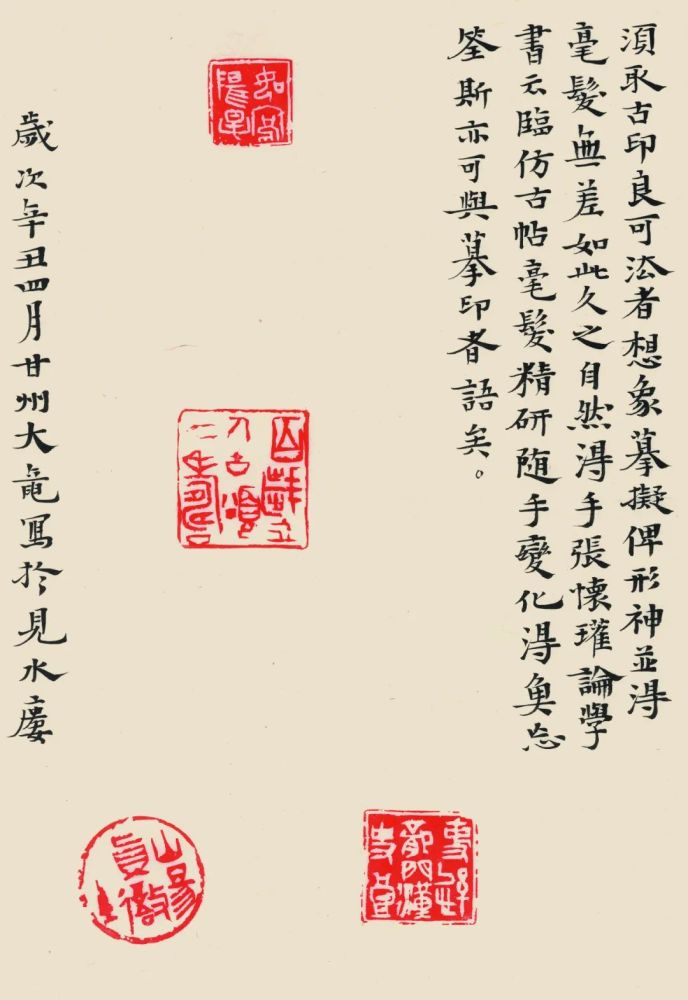 須取古印良可法者想象摹擬俾形神並得
毫髮無差如此久之自然得手張懷瓘論學
書云臨仿古帖毫髮精研随手變化得魚忘
筌斯亦可與摹印者語矣。
歲次辛丑四月甘州大龍寫於見水廔